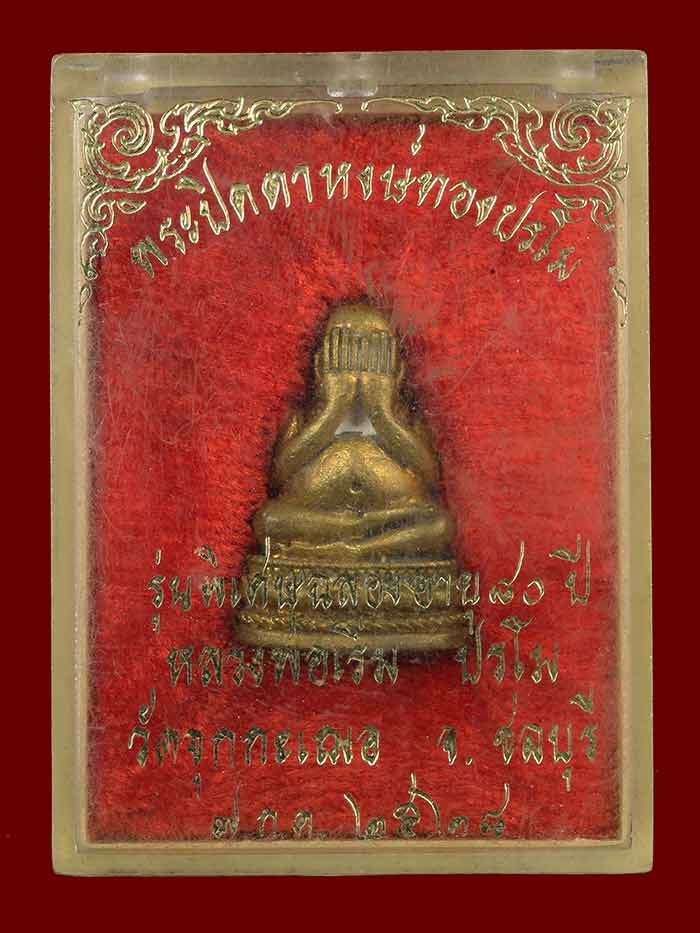 พระปิดตาหงษ์ทองปรโม
รุ่นพิเศษฉลองอายุ ๘๐ ปี
หลวงพ่อเริ่ม ปรโม
วัดจุกกะเฌอ จ. ชลบุรี
๗ ก.ค. ๒๕๒๘